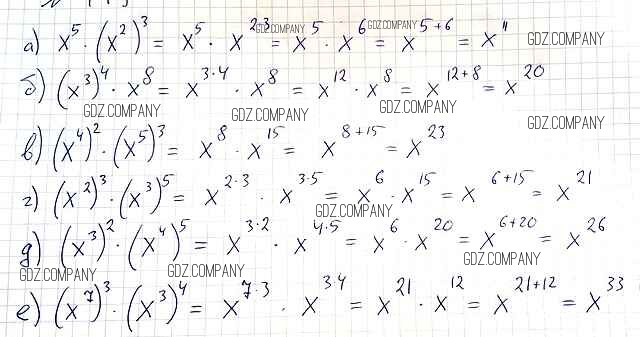 а) x⁵·(x²)³ = x⁵·x²·³ = x⁵·x⁶ = x⁵⁺⁶ = x¹¹
GDZ.COMPANY GDZ.COMPANY GDZ.COMPANY
б) (x³)⁴·x⁸ = x³·⁴·x⁸ = x¹²·x⁸ = x¹²⁺⁸ = x²⁰
GDZ.COMPANY GDZ.COMPANY GDZ.COMPANY GDZ.COMPANY
в) (x⁴)²·(x⁵)³ = x⁸·x¹⁵ = x⁸⁺¹⁵ = x²³
г) (x²)³·(x³)⁵ = x²·³·x³·⁵ = x⁶·x¹⁵ = x⁶⁺¹⁵ = x²¹
GDZ.COMPANY
д) (x³)²·(x⁴)⁵ = x³·²·x⁴·⁵ = x⁶·x²⁰ = x⁶⁺²⁰ = x²⁶
GDZ.COMPANY GDZ.COMPANY GDZ.COMPANY
е) (x⁷)³·(x³)⁴ = x⁷·³·x³·⁴ = x²¹·x¹² = x²¹⁺¹² = x³³